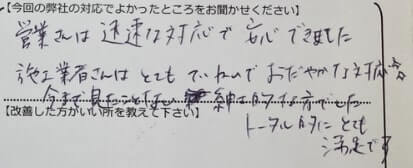 【今回の弊社の対応でよかったところをお聞かせください】
営業さんは迅速な対応で安心できました
施工業者さんはとてもていねいでおだやかな対応
今まで見たことない紳士的な方でした
【改善した方がいい所を教えて下さい】
トータル的にとても
満足です